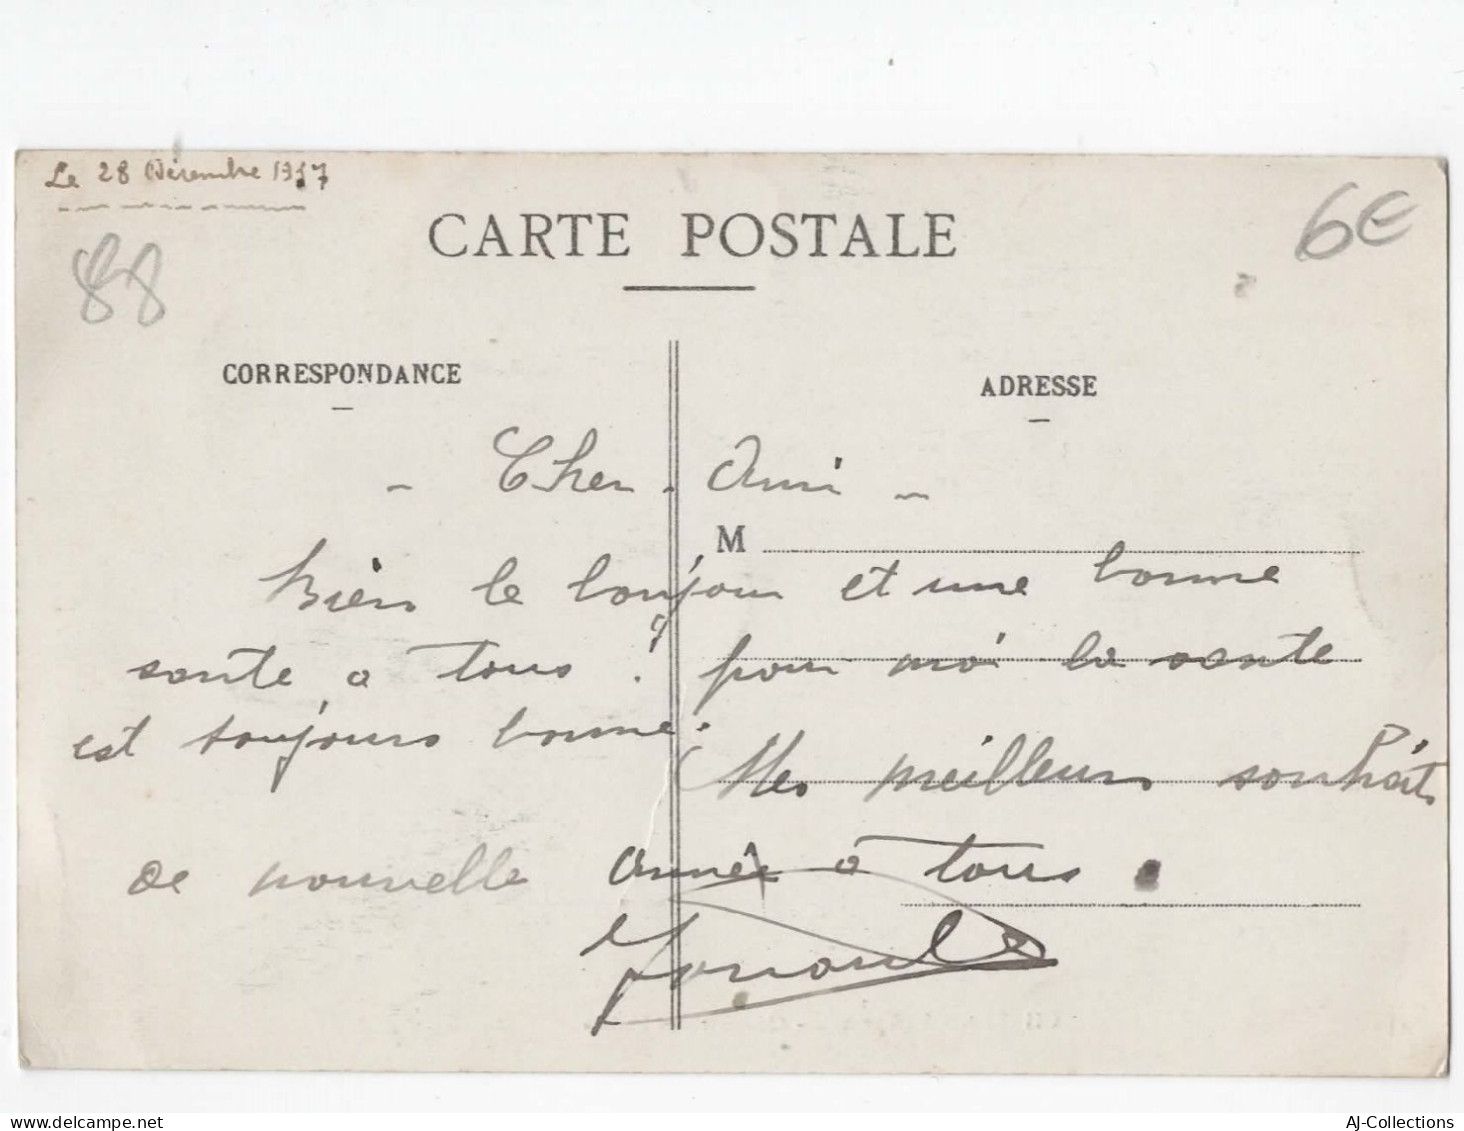 Le 28 Décembre 1917
CARTE POSTALE
6€
88
CORRESPONDANCE
ADRESSE
- Cher Ami -
M
Bien le bonjour et une bonne
sante a tous ! pour moi la sante
est toujours bonne.
Mes meilleurs souhaits
de nouvelle année à tous.
AJ-Collections
delcampe.net